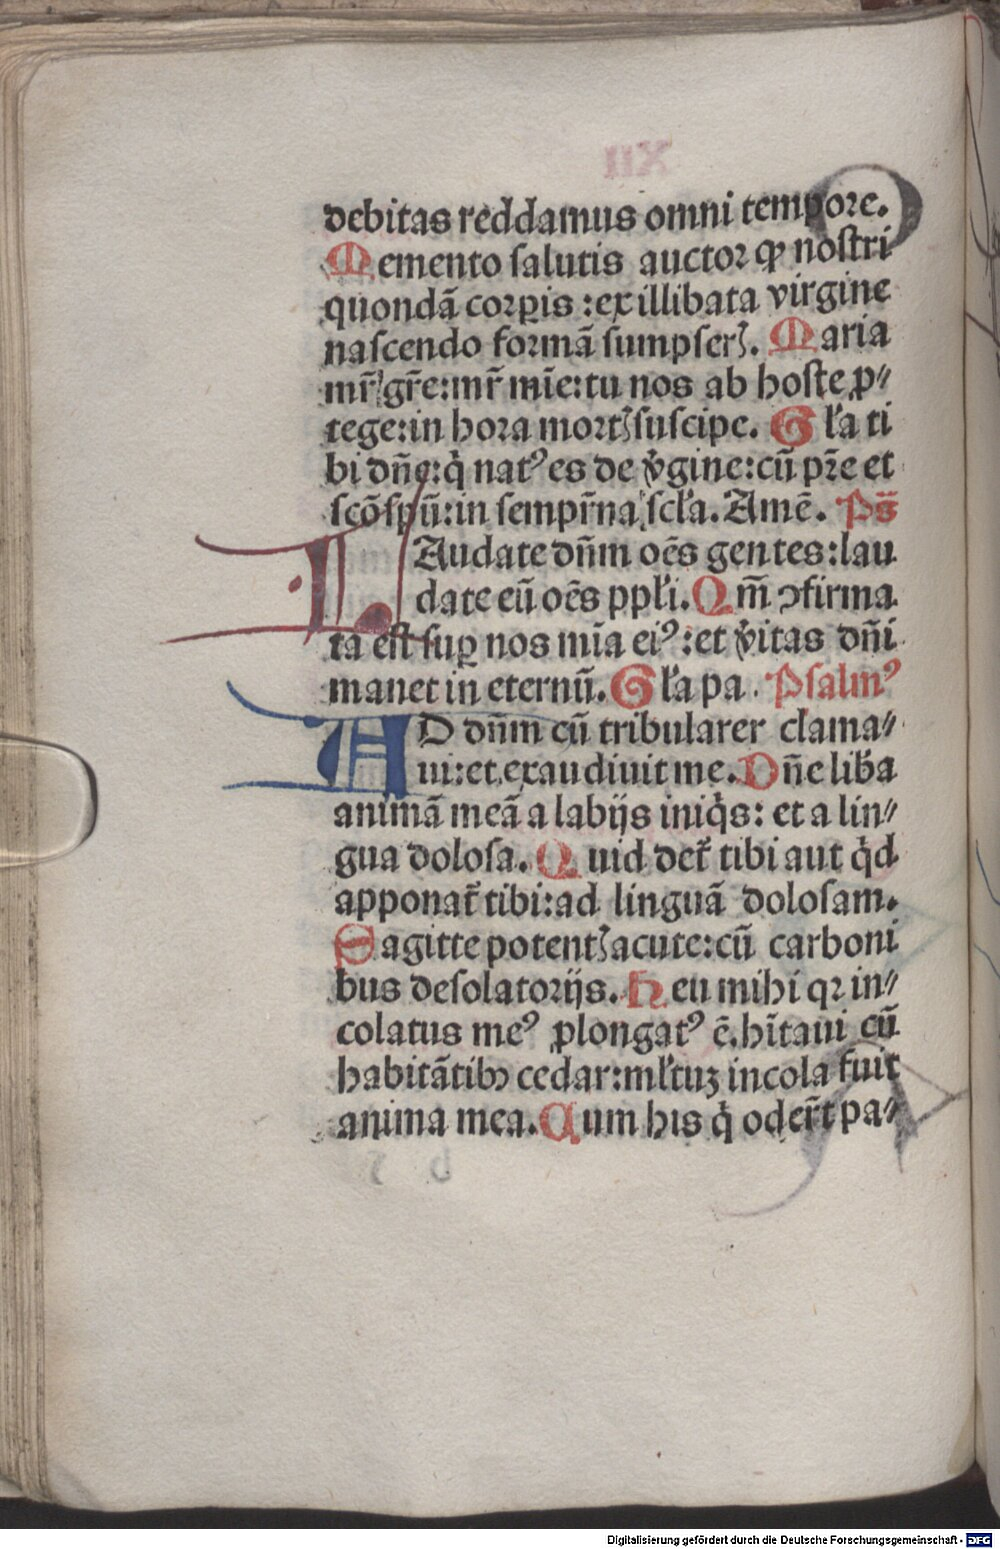 debitas reddamus omni tempore.
Memento salutis auctor ꝙ nostri
quondã corꝑis : ex illibata virgine
nascendo formã sumpserꝭ. Maria
mr̃ gr̃e : mr̃ mĩe : tu nos ab hoste ꝓ⸗
tege : in hora mortꝭ suscipe. Gl̃a ti
bi dñe : q̇ natꝰ es de v̾gine : cũ pr̃e et
scõ spũ : in sempr̃na scl̃a. Amẽ. Ps̃
LAudate dñm oẽs gentes : lau
date eũ oẽs ppl̃i. Qm̃ ↄfirma
ta est suꝑ nos mĩa eiꝰ : et v̾itas dñi
manet in eternũ. Gl̃a pa . Psalmꝰ
AD dñm cũ tribularer clama⸗
ui : et exaudiuit me. Dñe lib̾a
animã meã a labijs iniq̇s : et a lin⸗
gua dolosa. Quid det̃ tibi aut q̇d
apponat̃ tibi : ad linguã dolosam.
Sagitte potentꝭ acute : cũ carboni
bus desolatorijs. Heu mihi qꝛ in⸗
colatus meꝰ ꝓlongatꝰ ẽ. hĩtaui cũ
habitãtibꝫ cedar : ml̃tuꝫ incola fuit
anima mea. Cum his q̇ oder̃t pa⸗
Digitalisierung gefördert durch die Deutsche Forschungsgemeinschaft - DFG